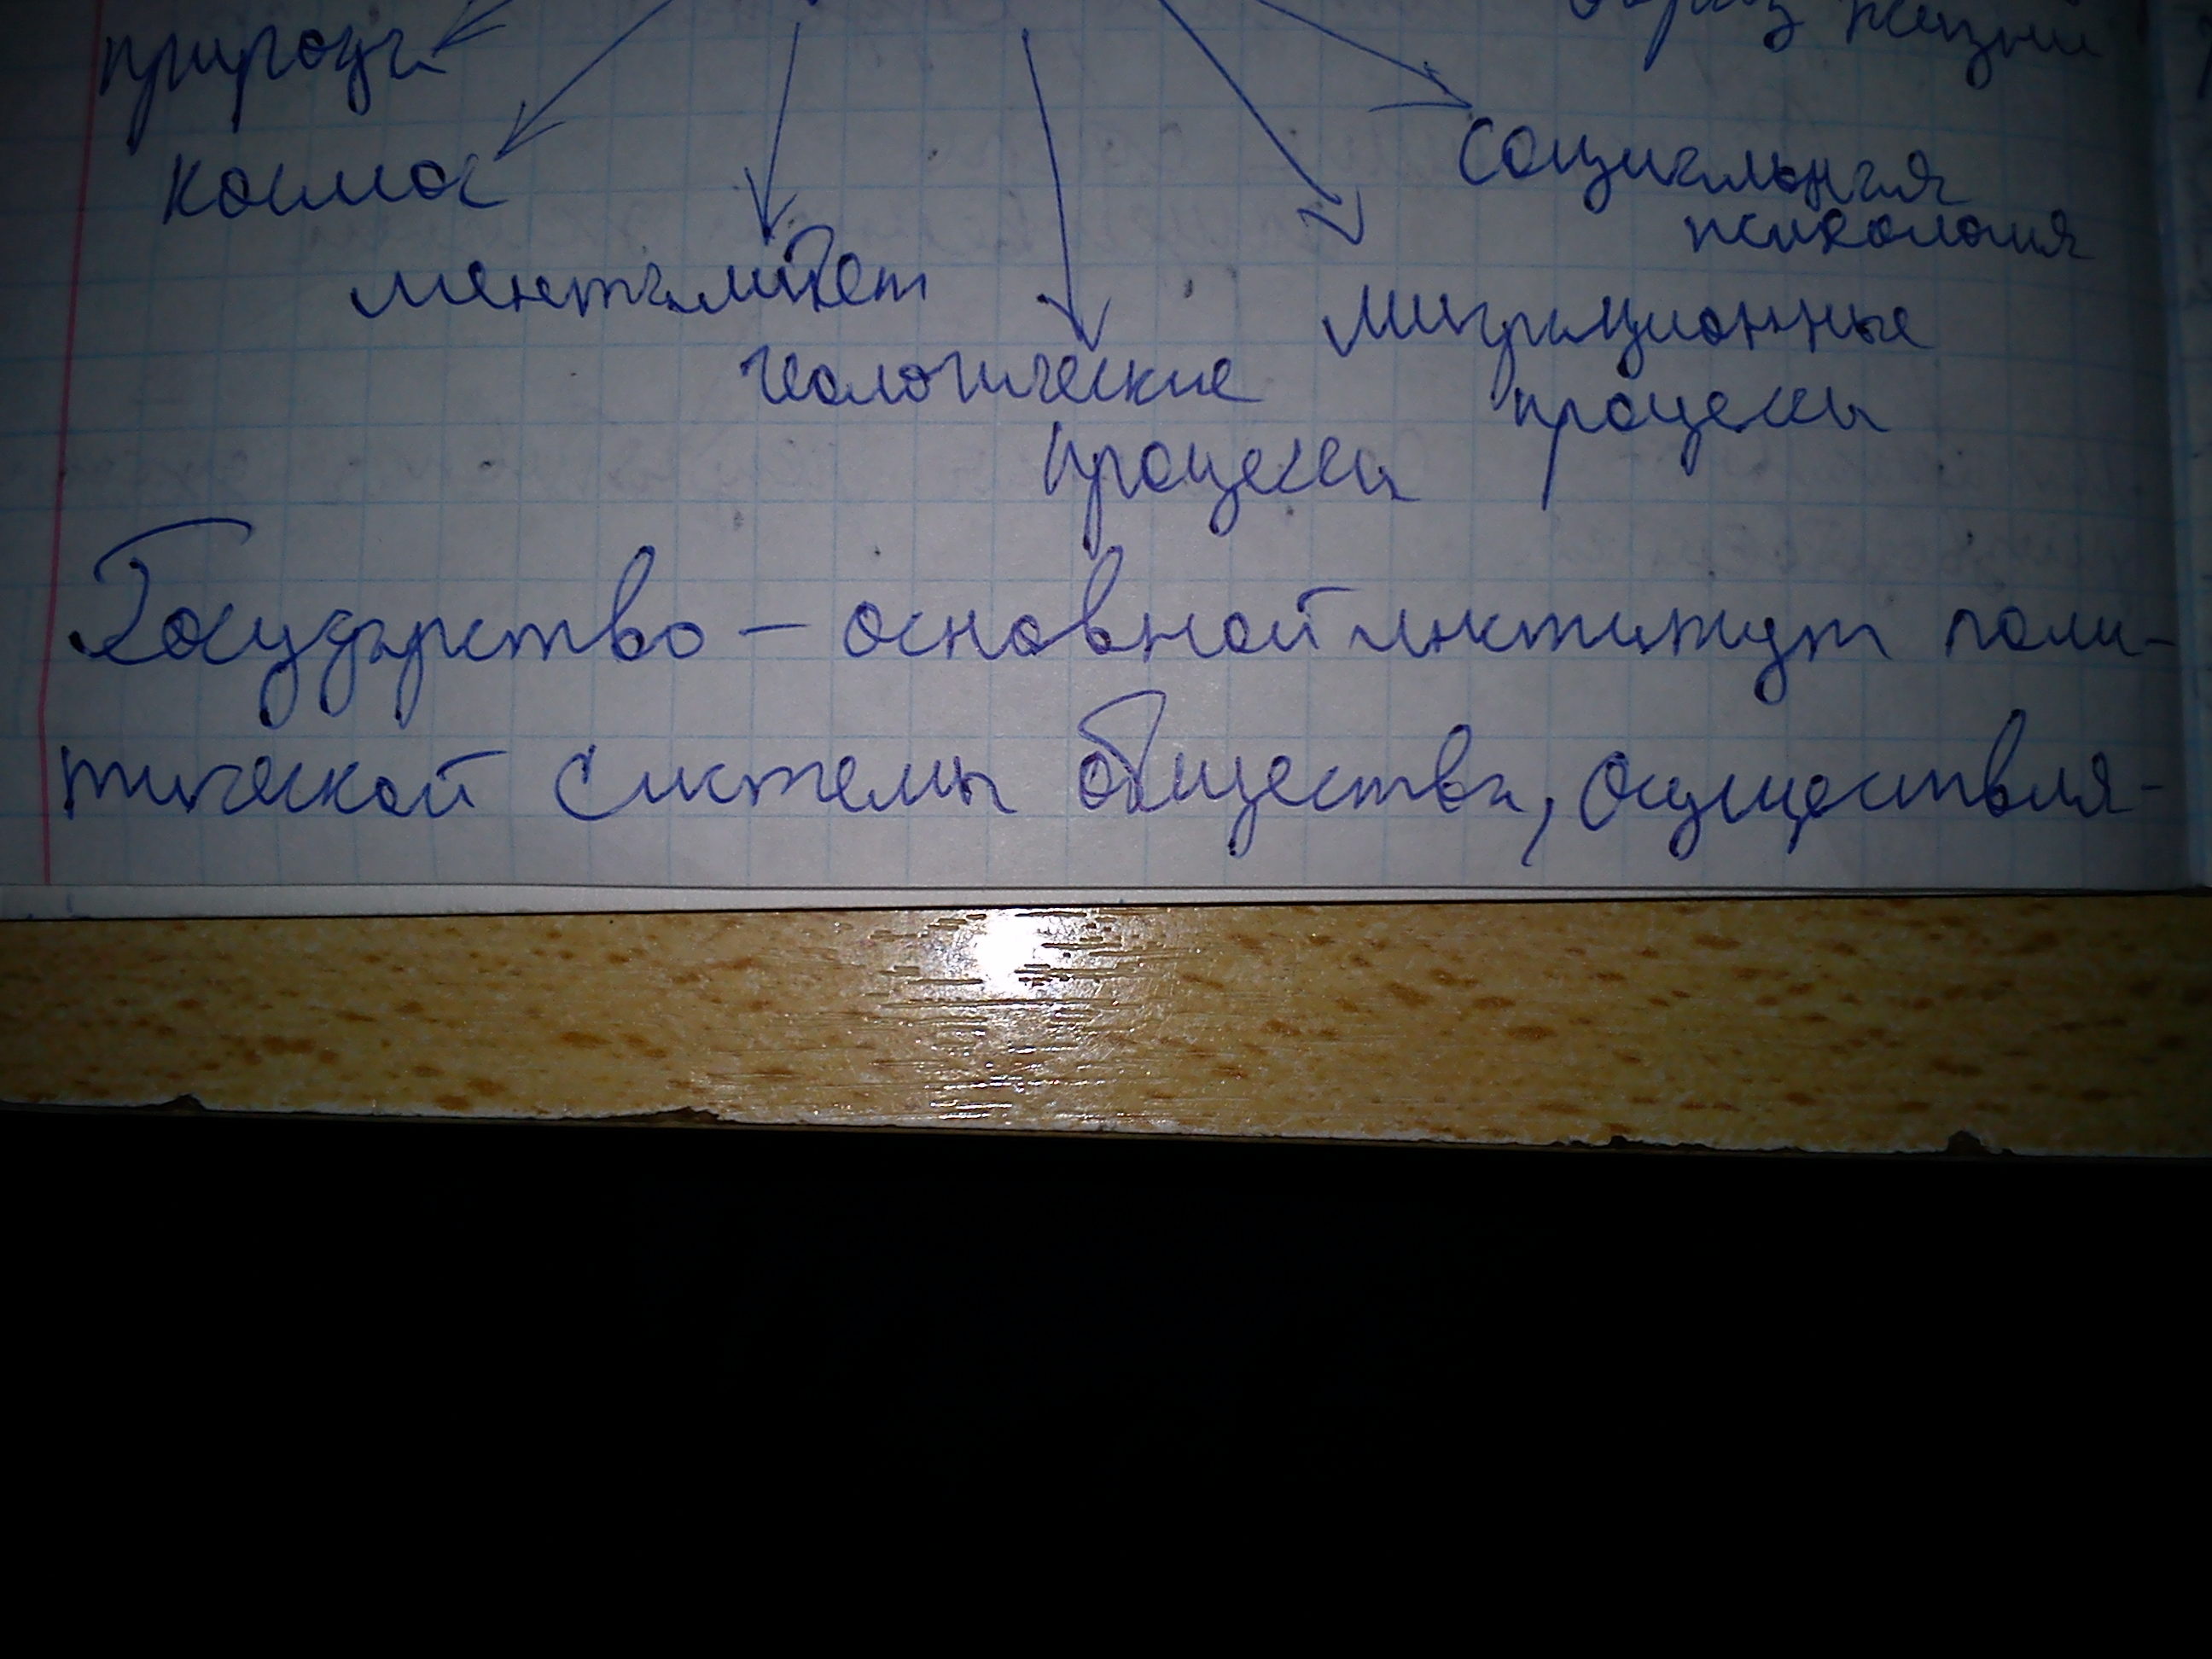 образ жизни
природа
космос
социальная
психология
менталитет
миграционные
геологические
процессы
процессы
Государство – основной институт поли-
тической системы общества, осуществля-